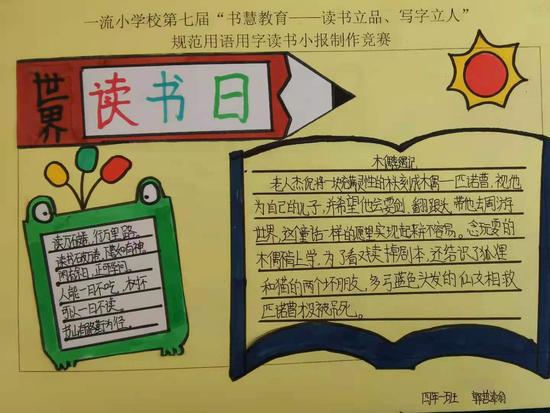 一流小学校第七届“书慧教育——读书立品、写字立人”
规范用语用字读书小报制作竞赛
世界
读书日
木偶奇遇记
老人杰佩得一块充满灵性的木头刻成木偶——匹诺曹,视他
为自己的儿子,并希望他会耍剑、翻跟头,带他去周游
世界,这童话一样的愿望实现起来并不容易。贪玩耍的
木偶稍上学,为了看戏卖掉剧本,还结识了狐狸
和猫的两个坏朋友,多亏蓝色头发的仙女相救
匹诺曹极被吊死。
读万卷书,行万里路。
读书破万卷,下笔如有神。
两耳
人能一日不吃
可以一日不读。
书山有路勤为径。
四年一班